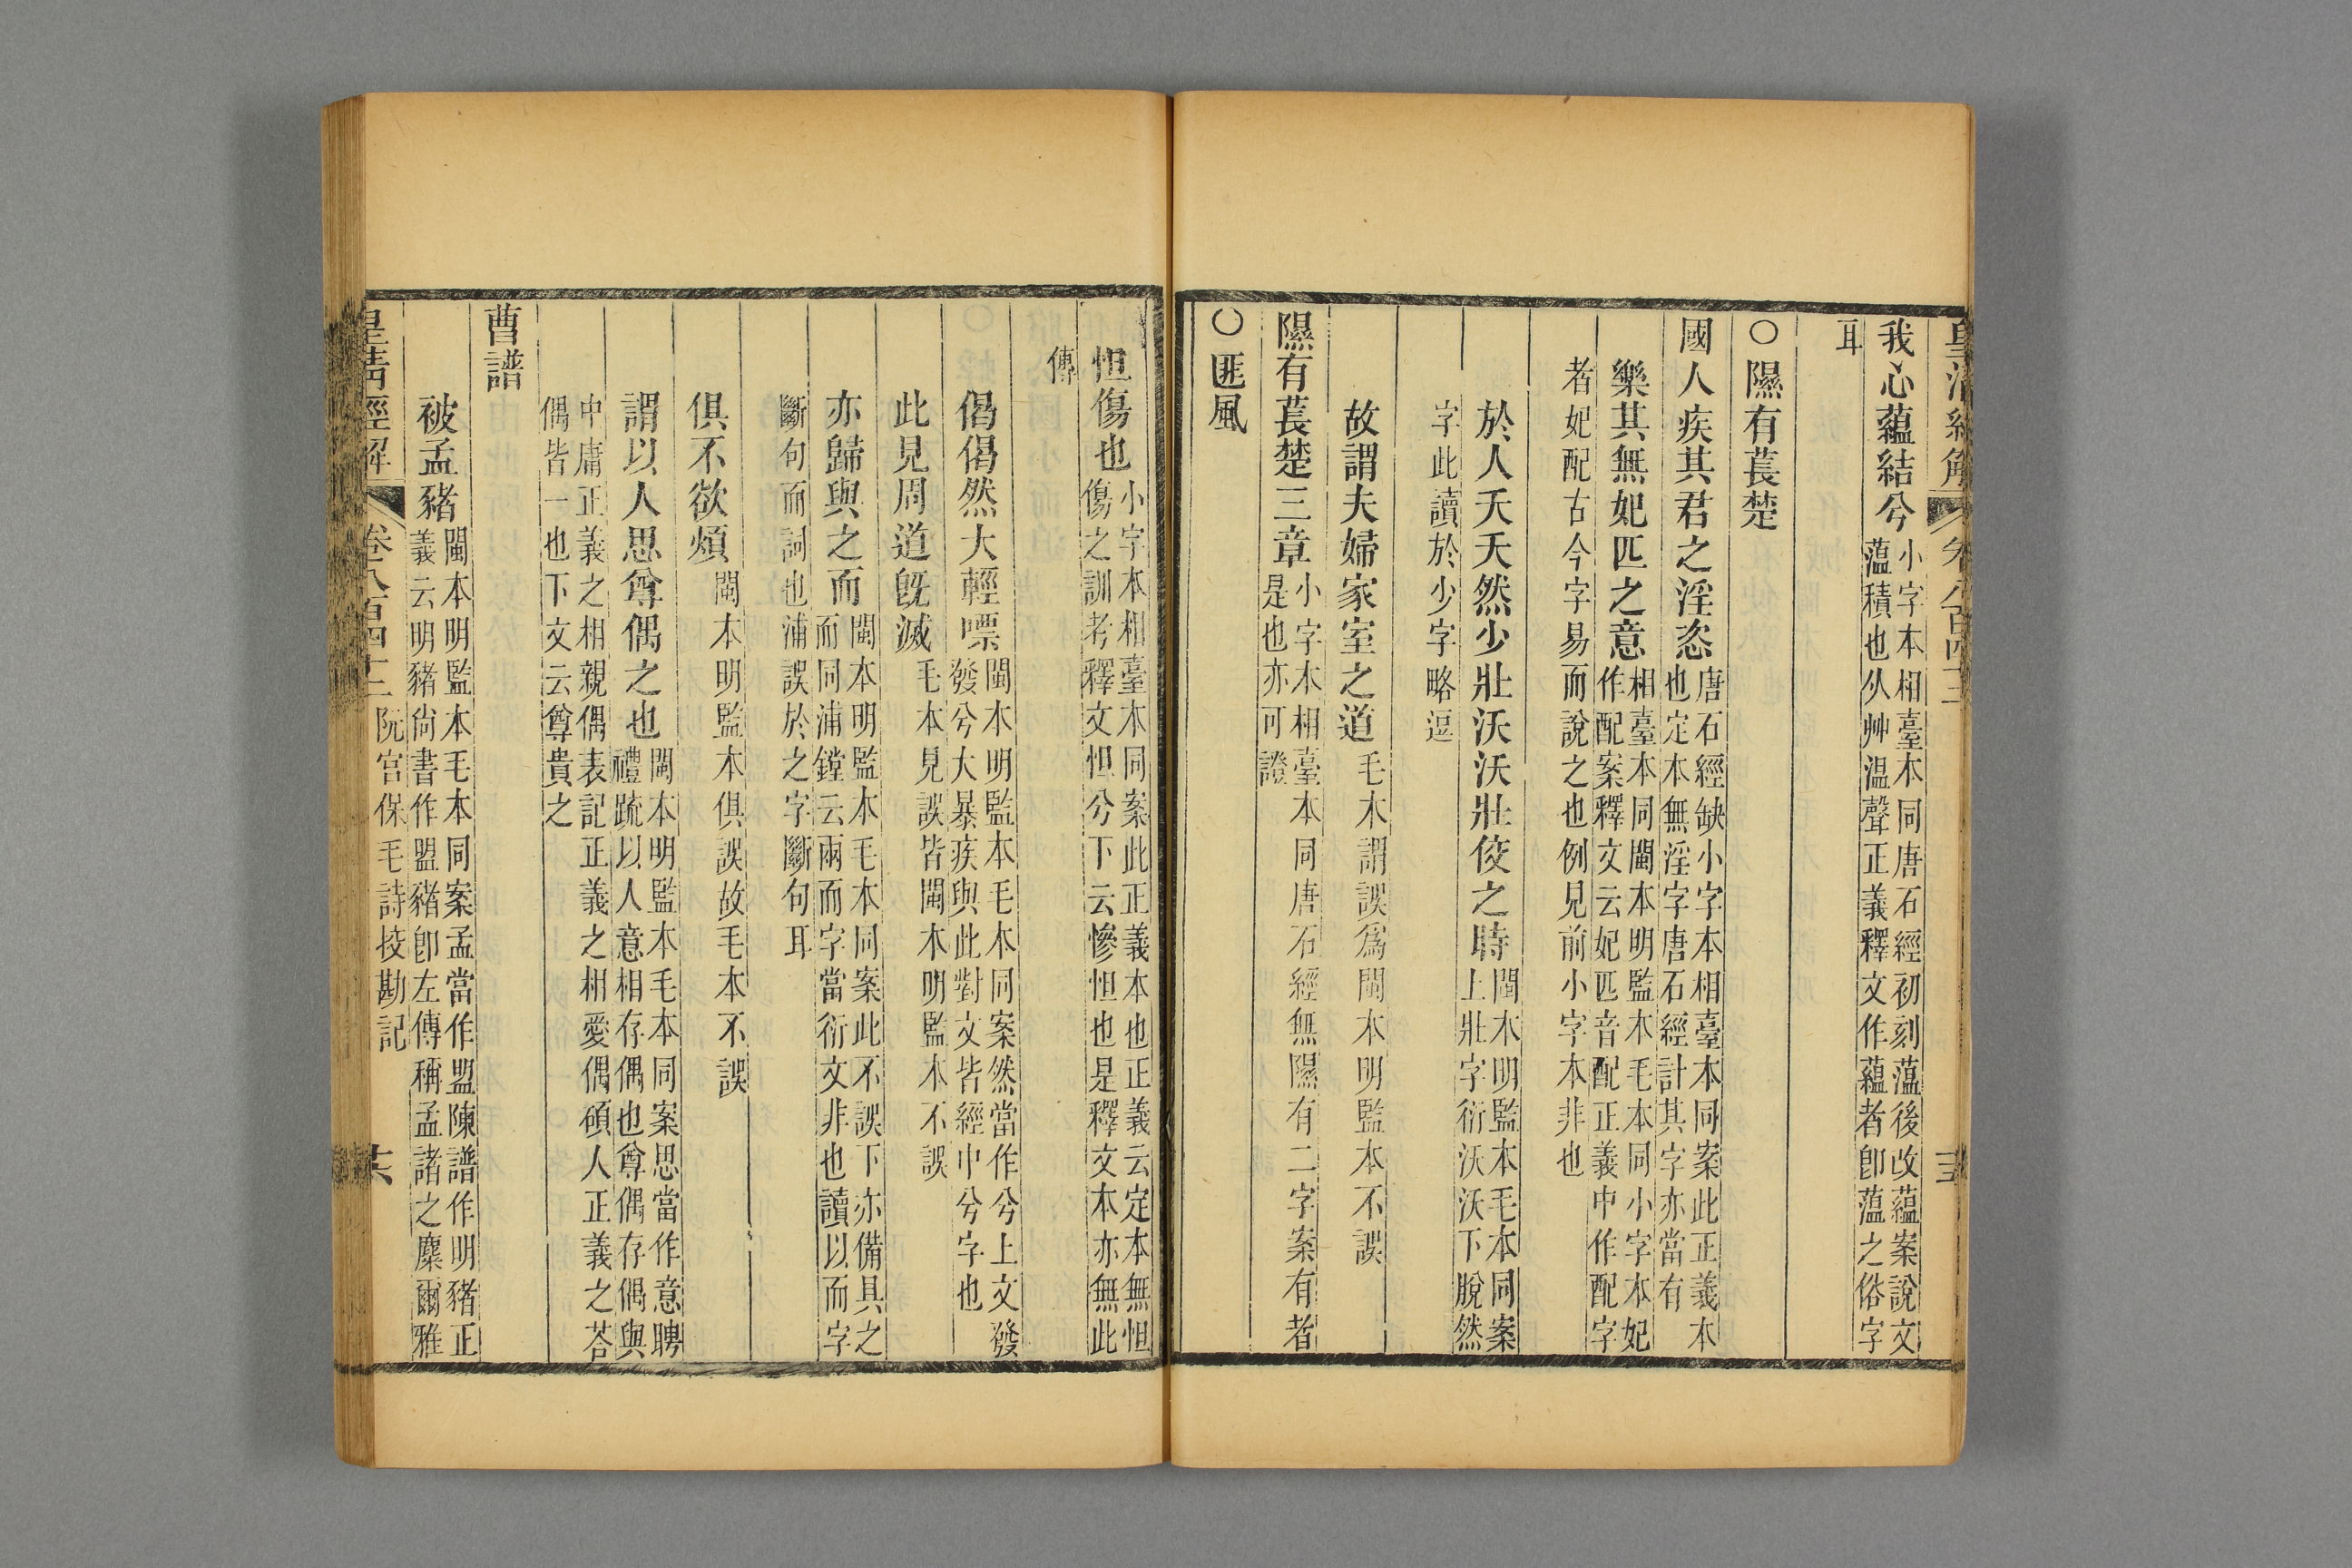 皇清經解 卷八百四十二
我心蘊結兮
小字本相臺本同唐石經初刻薀後改蘊案說文
薀積也从艸温聲正義釋文作蘊者卽薀之俗字
耳
○隰有萇楚
國人疾其君之淫恣
唐石經缺小字本相臺本同案此正義本
也定本無淫字唐石經計其字亦當有
樂其無妃匹之意
相臺本同閩本明監本毛本同小字本妃
作配案釋文云妃匹音配正義中作配字
者妃配古今字易而說之也例見前小字本非也
於人夭夭然少壯沃沃壯佼之時
閩本明監本毛本同案
上壯字衍沃沃下脫然
字此讀於少字略逗
故謂夫婦家室之道
毛本謂誤爲閩本明監本不誤
隰有萇楚三章
小字本相臺本同唐石經無隰有二字案有者
是也亦可證
○匪風
怛傷也
小字本相臺本同案此正義本也正義云定本無怛
傷之訓考釋文怛兮下云慘怛也是釋文本亦無此
傳
偈偈然大輕嘌
閩本明監本毛本同案然當作兮上文發
發兮大暴疾與此對文皆經中兮字也
此見周道旣滅
毛本見誤皆閩本明監本不誤
亦歸與之而
閩本明監本毛本同案此不誤下亦備具之
而同浦鏜云兩而字當衍文非也讀以而字
斷句而詞也浦誤於之字斷句耳
俱不欲煩
閩本明監本俱誤故毛本不誤
謂以人思尊偶之也
閩本明監本毛本同案思當作意聘
禮䟽以人意相存偶也尊偶存偶與
中庸正義之相親偶表記正義之相愛偶碩人正義之荅
偶皆一也下文云尊貴之
曹譜
被孟豬
閩本明監本毛本同案孟當作盟陳譜作明豬正
義云明豬尙書作盟豬卽左傳稱孟諸之麋爾雅
皇清經解 卷八百四十二 阮宮保毛詩挍勘記